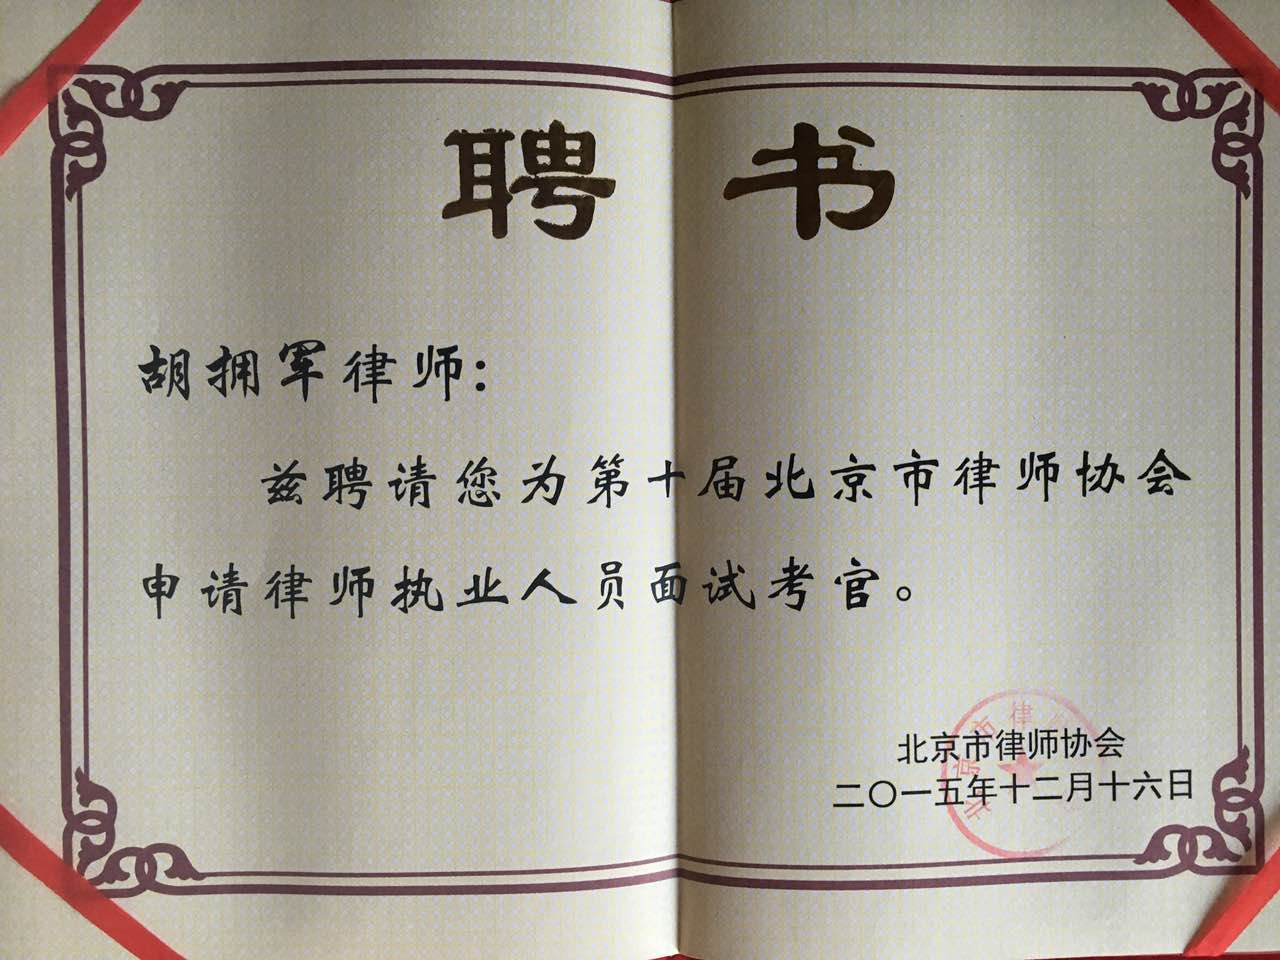 聘书
胡拥军律师：
兹聘请您为第十届北京市律师协会
申请律师执业人员面试考官。
北京市律师协会
二〇一五年十二月十六日
北京市律